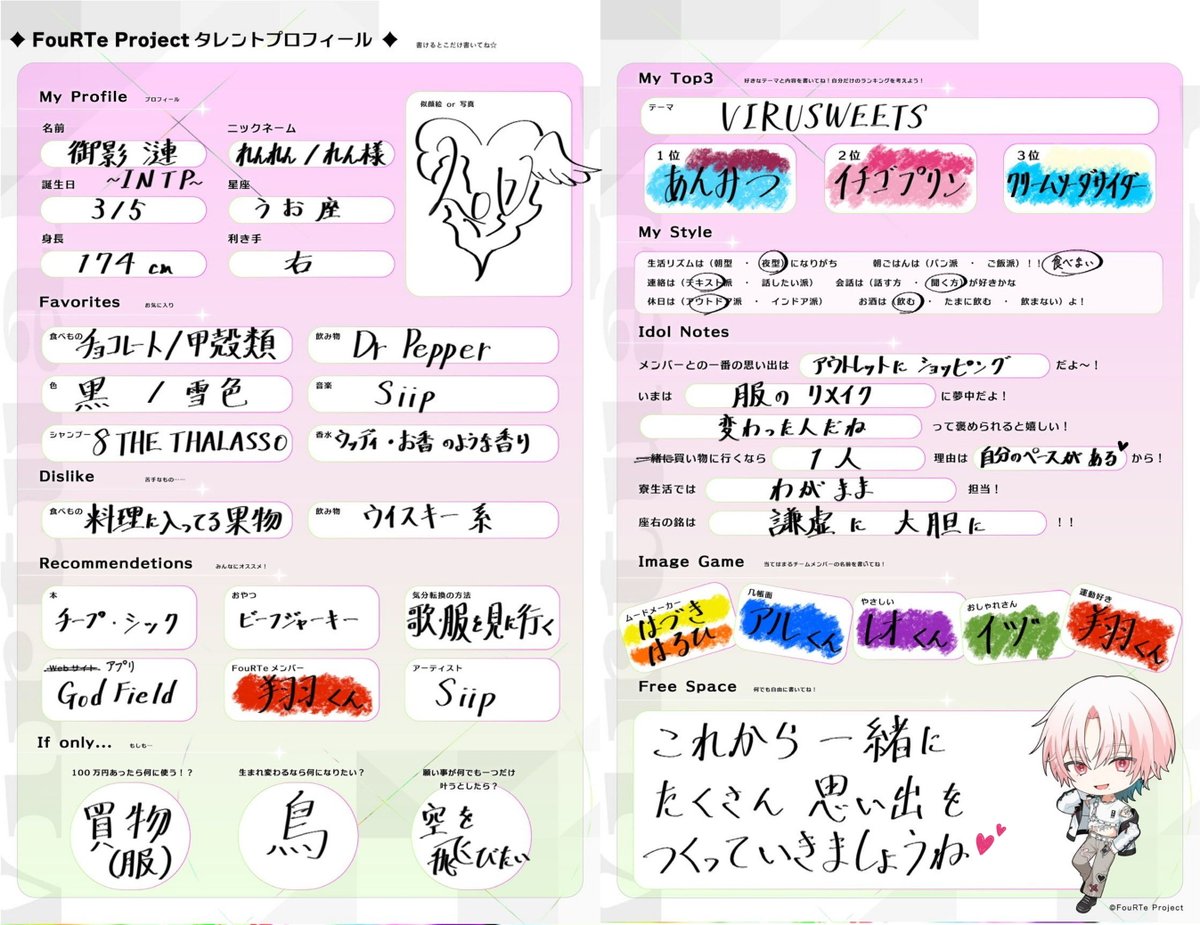 ◆ FouRTe Project タレントプロフィール ◆ 書けるとこだけ書いてね☆
My Profile プロフィール
名前 ニックネーム
御影 漣 れんれん/れん様
~INTP~
誕生日 星座
3/5 うお座
身長 利き手
174cm 右
似顔絵 or 写真
Favorites お気に入り
食べもの チョコレート/甲殻類 飲み物 Dr Pepper
色 黒 / 雪色 音楽 Siip
シャンプー 8 THE THALASSO 香水 ウッディ・お香のような香り
Dislike 苦手なもの……
食べもの 料理に入ってる果物 飲み物 ウイスキー系
Recommendetions みんなにオススメ!
本 おやつ 気分転換の方法
チープ・シック ビーフジャーキー 歌・服を見に行く
Webサイト アプリ FouRTeメンバー アーティスト
God Field 翔羽くん Siip
If only... もしも…
100万円あったら何に使う!? 生まれ変わるなら何になりたい? 願い事が何でも一つだけ
叶うとしたら?
買物 鳥 空を
(服) 飛びたい
My Top3 好きなテーマと内容を書いてね!自分だけのランキングを考えよう!
テーマ VIRUSWEETS
1位 2位 3位
あんみつ イチゴプリン クリームソーダサイダー
My Style
生活リズムは(朝型 ・ 夜型)になりがち 朝ごはんは(パン派 ・ ご飯派)!! 食べない
連絡は(テキスト派 ・ 話したい派) 会話は(話す方 ・ 聞く方)が好きかな
休日は(アウトドア派 ・ インドア派) お酒は(飲む ・ たまに飲む ・ 飲まない)よ!
Idol Notes
メンバーとの一番の思い出は アウトレットにショッピング だよ~!
いまは 服のリメイク に夢中だよ!
変わった人だね って褒められると嬉しい!
一緒に買い物に行くなら 1人 理由は 自分のペースがある♥ から!
寮生活では わがまま 担当!
座右の銘は 謙虚に 大胆に !!
Image Game 当てはまるチームメンバーの名前を書いてね!
ムードメーカー 几帳面 やさしい おしゃれさん 運動好き
はづき アルくん レオくん イヅ 翔羽くん
はるひ
Free Space 何でも自由に書いてね!
これから一緒に
たくさん思い出を
つくっていきましょうね
©FouRTe Project